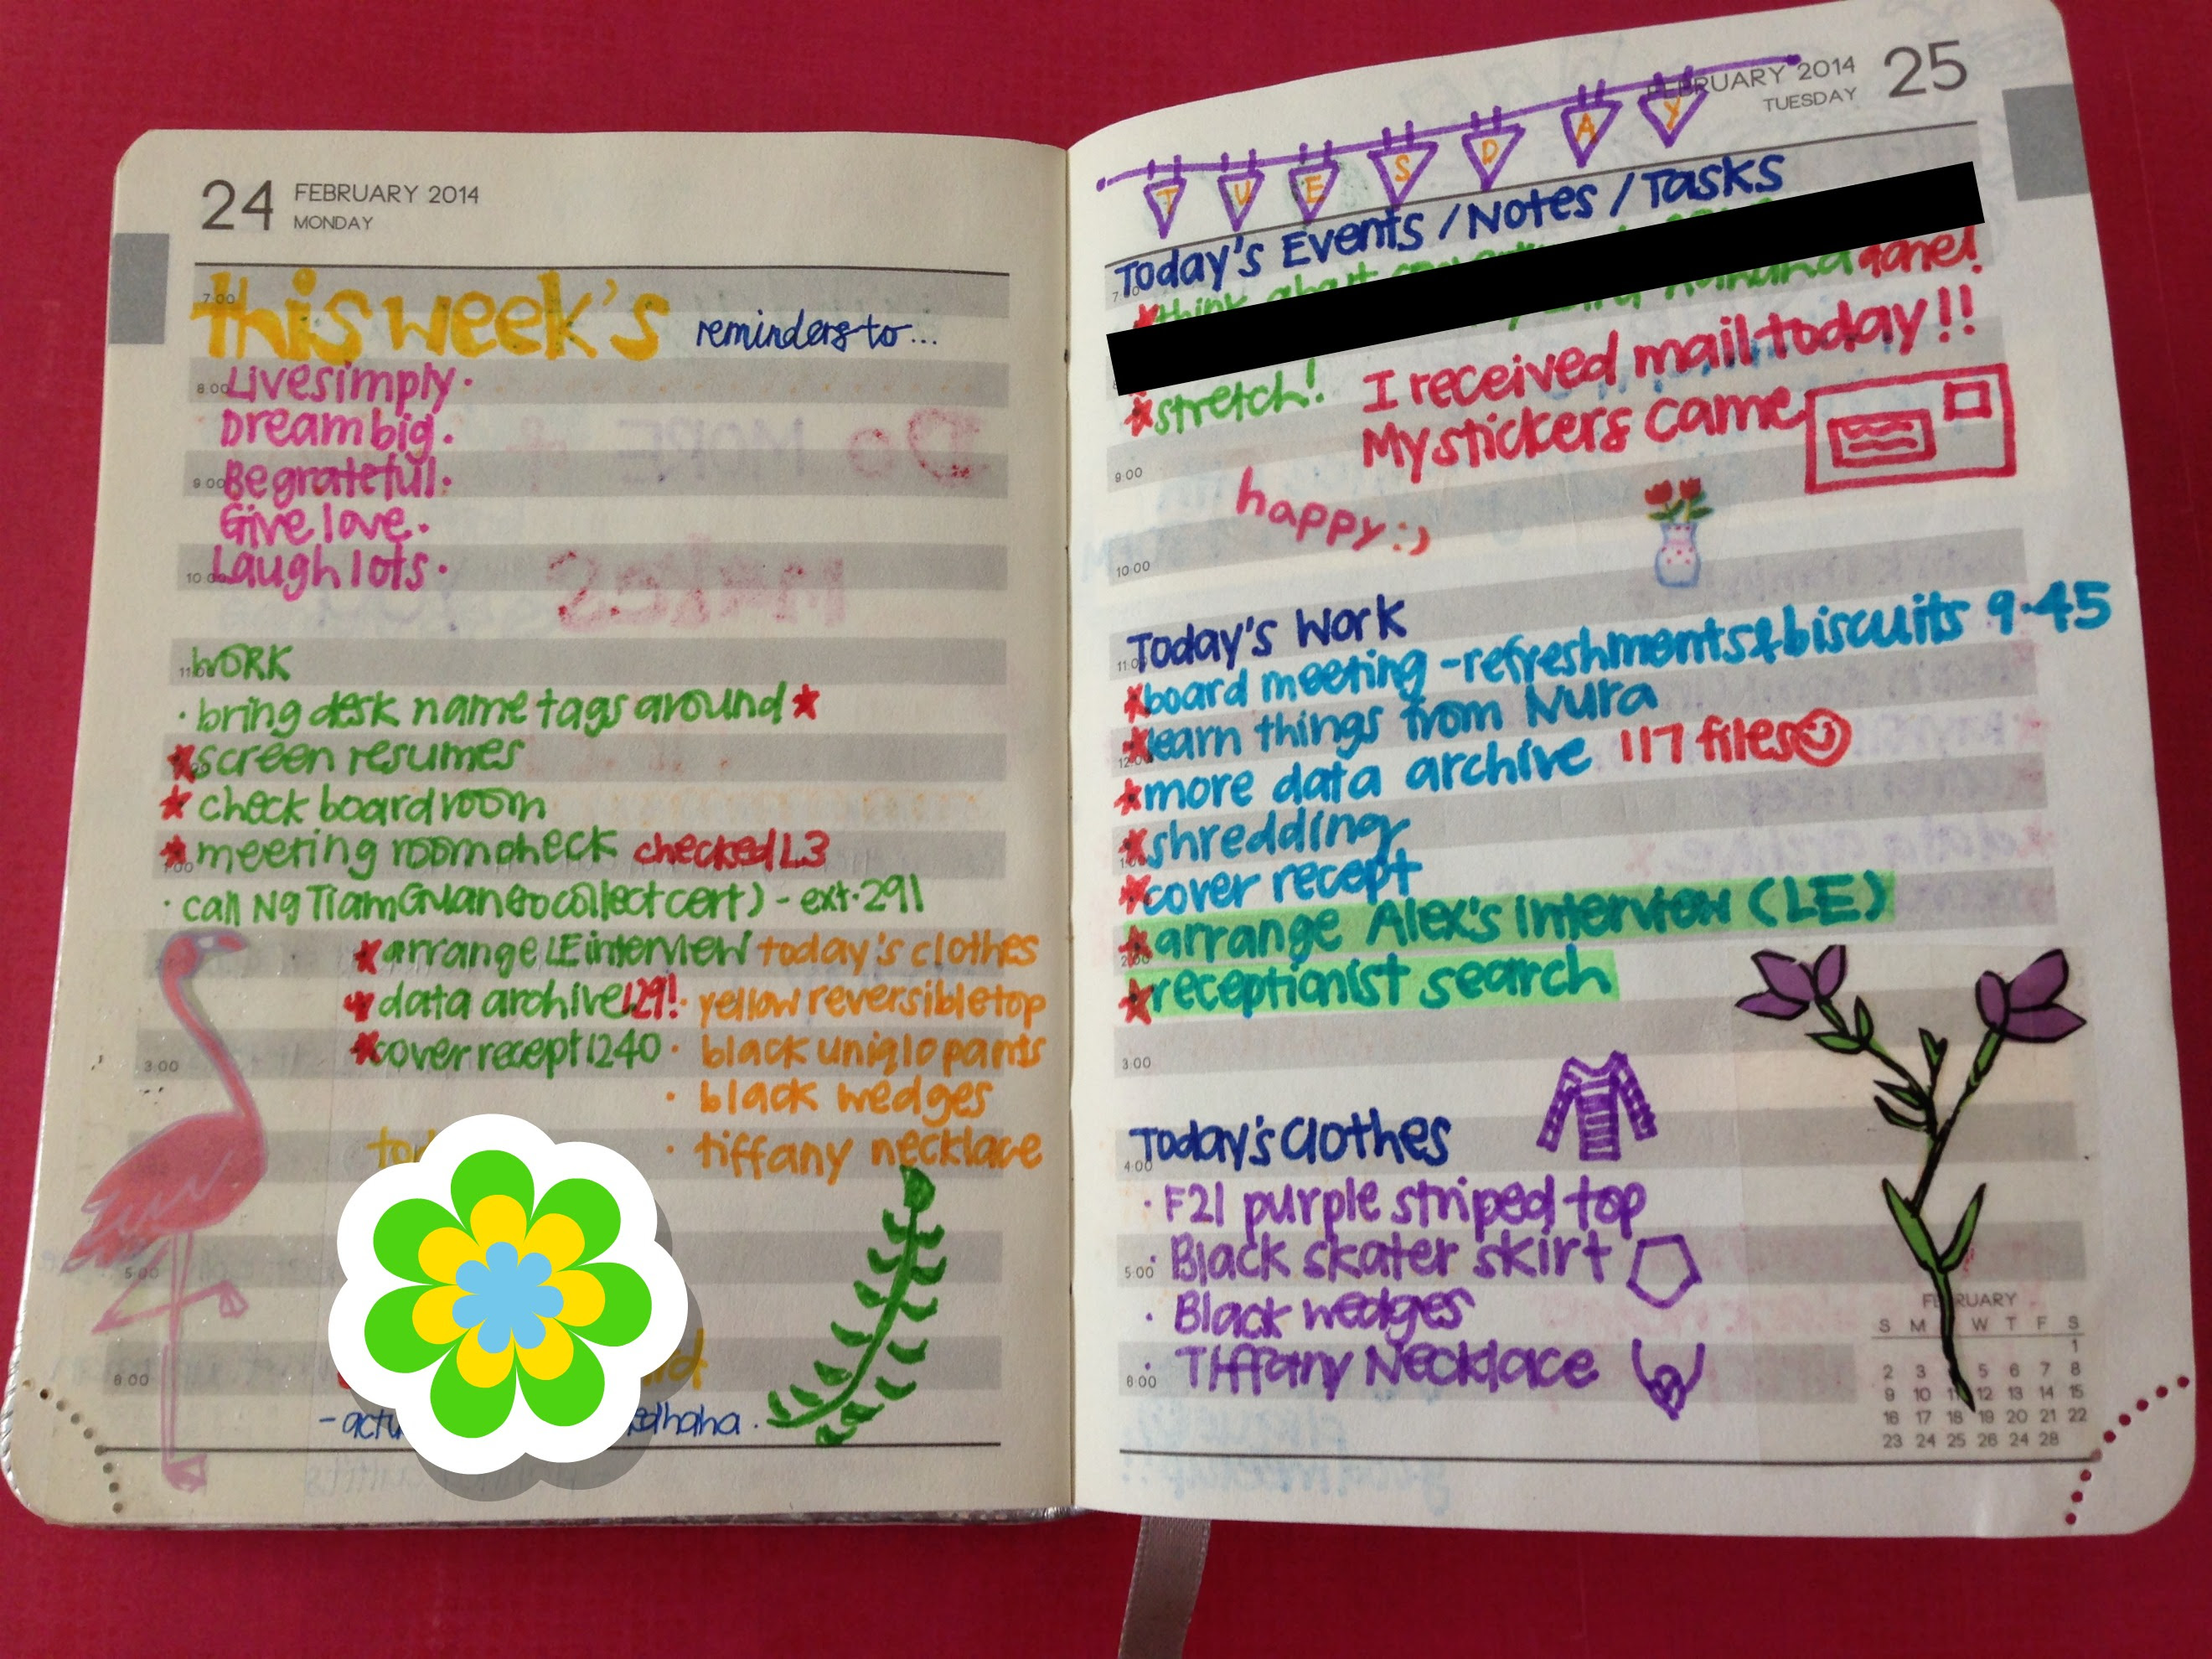 24 FEBRUARY 2014
MONDAY
this week's reminders to...
Live simply.
Dream big.
Be grateful.
Give love.
Laugh lots.
WORK
· bring desk name tags around *
* screen resumes
* check board room
* meeting room check checked L3
· call Ng Tiam Guan (to collect cert) - ext. 291
* arrange LE interview
* data archive 129!
* cover recept 1240
today's clothes
· yellow reversible top
· black uniqlo pants
· black wedges
· tiffany necklace
haha.
7:00
8:00
9:00
10:00
11:00
1:00
3:00
5:00
6:00
FEBRUARY 2014 25
TUESDAY
TUESDAY
Today's Events / Notes / Tasks
* think about
done!
* stretch!
I received mail today!!
My stickers came
happy :)
Today's Work
* board meeting - refreshments & biscuits 9.45
* learn things from Nura
* more data archive 117 files
* shredding
* cover recept
* arrange Alex's interview (LE)
* receptionist search
Today's Clothes
· F21 purple striped top
· Black skater skirt
· Black wedges
· Tiffany Necklace
9:00
10:00
11:00
12:00
1:00
2:00
3:00
4:00
5:00
6:00
FEBRUARY
S M W T F S
1
2 3 5 6 7 8
9 10 11 12 13 14 15
16 17 18 19 20 21 22
23 24 25 26 24 28